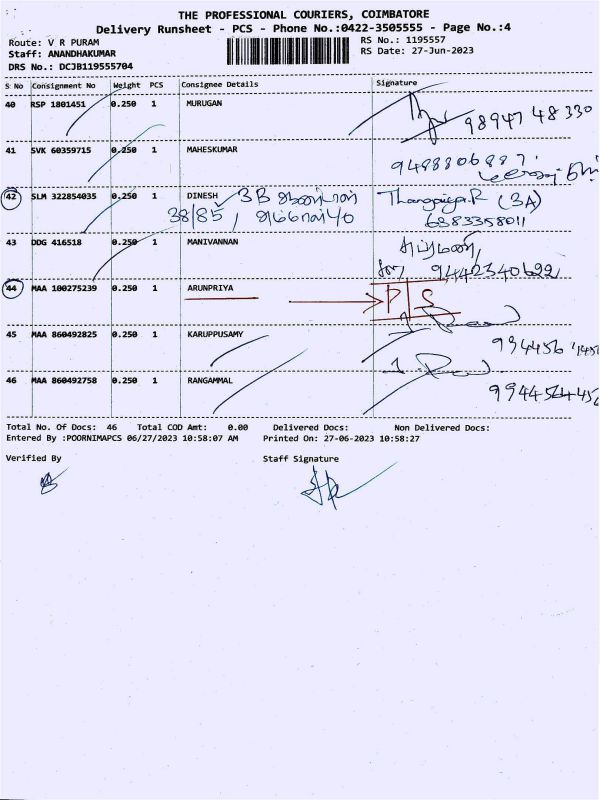 THE PROFESSIONAL COURIERS, COIMBATORE
Delivery Runsheet - PCS - Phone No.:0422-3505555 - Page No.:4
Route: V R PURAM
RS No.: 1195557
Staff: ANANDHAKUMAR
RS Date: 27-Jun-2023
DRS No.: DCJB119555704
S No Consignment No Weight PCS Consignee Details Signature
40 RSP 1801451 0.250 1 MURUGAN
98947 48330
41 SVK 60359715 0.250 1 MAHESKUMAR
9488806887
42 SLM 322854035 0.250 1 DINESH 3B Thangaiya.R (3A)
38/85, 6383358011
43 DDG 416518 0.250 1 MANIVANNAN
for, 9442340622
44 MAA 100275239 0.250 1 ARUNPRIYA P S
45 MAA 860492825 0.250 1 KARUPPUSAMY
46 MAA 860492758 0.250 1 RANGAMMAL
Total No. Of Docs: 46 Total COD Amt: 0.00 Delivered Docs: Non Delivered Docs:
Entered By :POORNIMAPCS 06/27/2023 10:58:07 AM Printed On: 27-06-2023 10:58:27
Verified By Staff Signature